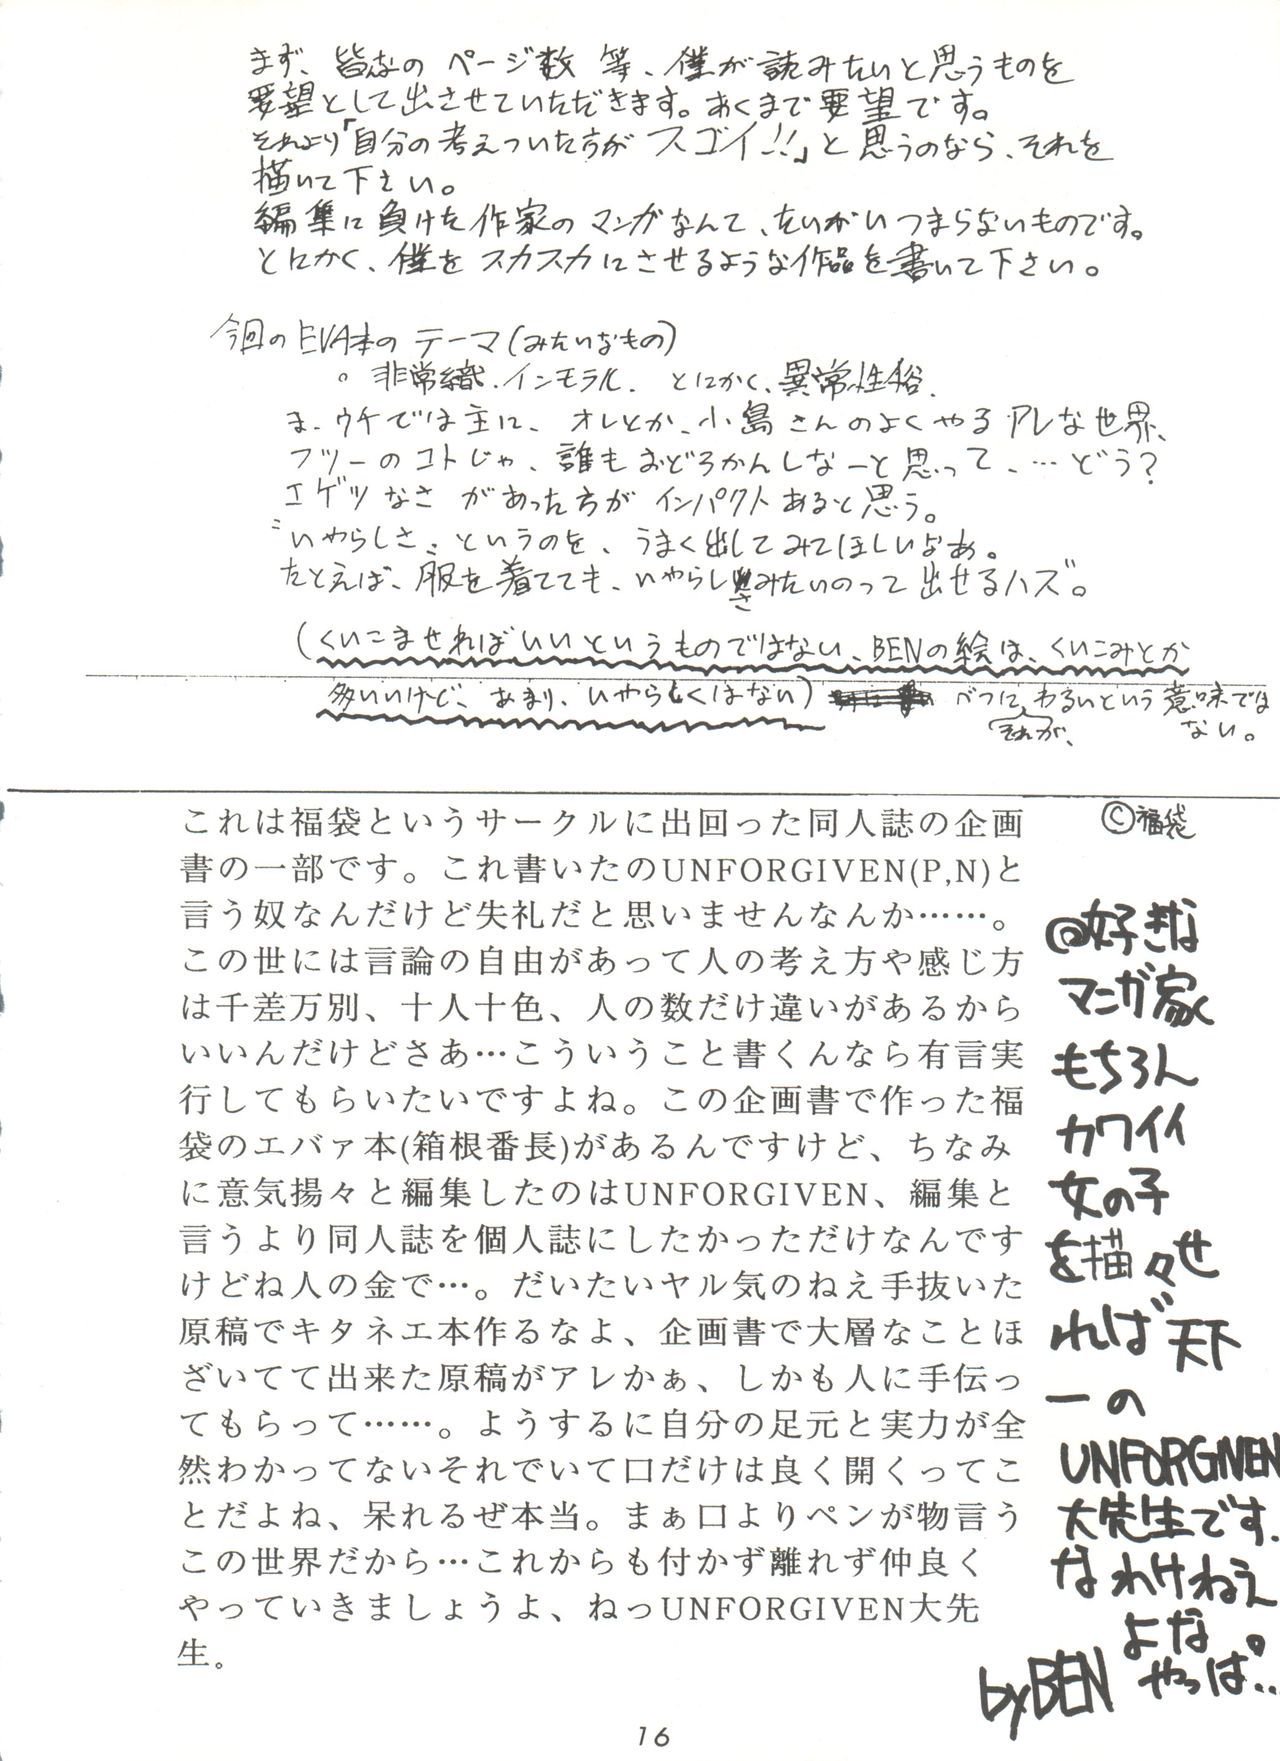 まず、皆なの ページ数 等、僕が読みたいと思うものを
要望として出させていただきます。あくまで要望です。
それより「自分の考えついた方が スゴイ!!」と思うのなら、それを
描いて下さい。
編集に負けた作家のマンガなんて、たいがいつまらないものです。
とにかく、僕をスカスカにさせるような作品を書いて下さい。
今回のEVA本のテーマ(みたいなもの)
。非常織.インモラル. とにかく、異常性俗.
ま、ウチでは主に、オレとか、小島さんのよくやるアレな世界、
フツーのコトじゃ、誰もおどろかんしなーと思って、…どう?
エゲツなさがあった方がインパクトあると思う。
"いやらしさ"というのを、うまく出してみてほしいなあ。
たとえば、服を着てても、いやらしさみたいのって出せるハズ。
(くいこませればいいというものではない、BENの絵は、くいこみとか
多いいけど、あまり、いやらしくはない) べつに、それが、わるいという意味では
ない。
これは福袋というサークルに出回った同人誌の企画
書の一部です。これ書いたのUNFORGIVEN(P,N)と
言う奴なんだけど失礼だと思いませんなんか……。
この世には言論の自由があって人の考え方や感じ方
は千差万別、十人十色、人の数だけ違いがあるから
いいんだけどさあ…こういうこと書くんなら有言実
行してもらいたいですよね。この企画書で作った福
袋のエバァ本(箱根番長)があるんですけど、ちなみ
に意気揚々と編集したのはUNFORGIVEN、編集と
言うより同人誌を個人誌にしたかっただけなんです
けどね人の金で…。だいたいヤル気のねえ手抜いた
原稿でキタネエ本作るなよ、企画書で大層なことほ
ざいてて出来た原稿がアレかぁ、しかも人に手伝っ
てもらって……。ようするに自分の足元と実力が全
然わかってないそれでいて口だけは良く開くってこ
とだよね、呆れるぜ本当。まぁ口よりペンが物言う
この世界だから…これからも付かず離れず仲良く
やっていきましょうよ、ねっUNFORGIVEN大先
生。
©福袋
@好きな
マンガ家
もちろん
カワイイ
女の子
を描々せ
れば天下
一の
UNFORGIVEN
大先生です.
なわけねえ
よな。
やっぱ…
by BEN
16